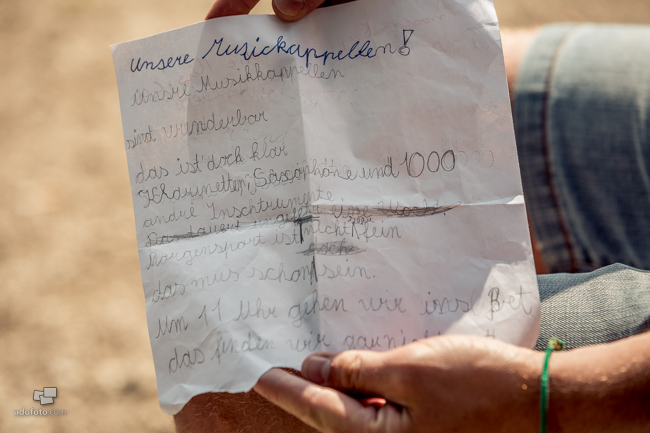 Unsere Muzickappellen!
Unsre Musikkappellen
sind wunderbar
das ist doch klar
Saxophöne und 1000
andre Inschtrumente
Morgensport ist nicht fein
das mus schon sein.
Um 11 Uhr gehen wir ins Bet
das finden wir
adofoto.com